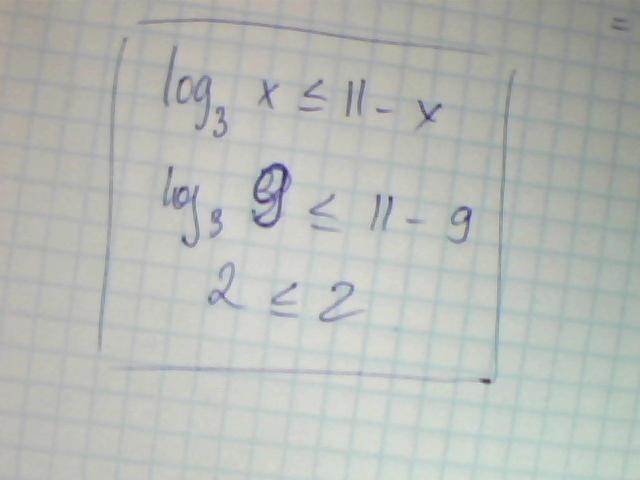 log₃ x ≤ 11 - x
log₃ 9 ≤ 11 - 9
2 ≤ 2
=